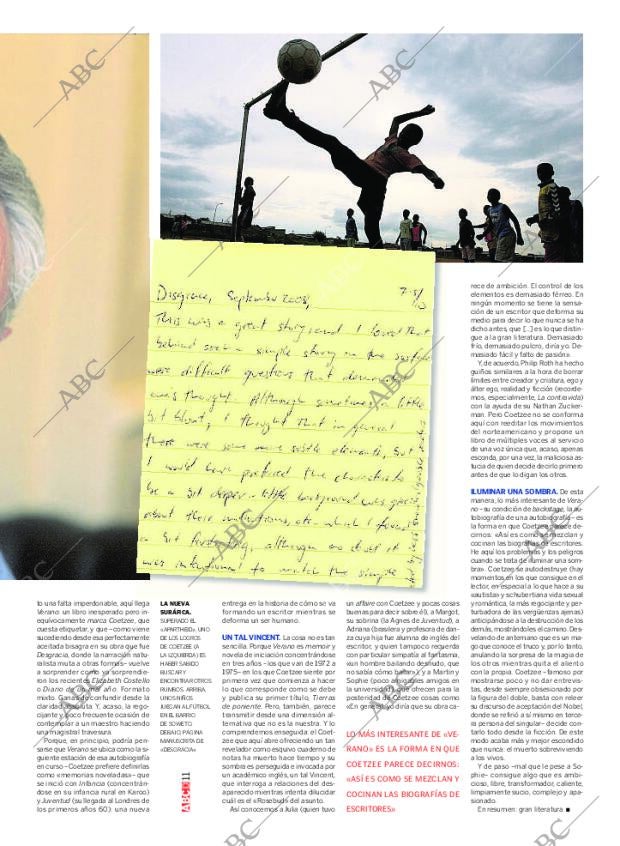 Disgrace, September 2008,
7.5/
This was a great story and I loved that
behind such a simple story on the surface
were difficult questions that demanded
one's thought. Although sometimes a little
bit blunt, I thought that in general
there were some more subtle elements, but
I would have preferred the characters
be a bit deeper - little background was given
about their motivations, etc. which I found
a bit frustrating, although no doubt it
was intentional to match the simple
to una falta imperdonable, aquí llega
Verano: un libro inesperado pero in-
equívocamente marca Coetzee, que
cuesta etiquetar, y que –como viene
sucediendo desde esa perfectamente
aceitada bisagra en su obra que fue
Desgracia, donde la narración natu-
ralista muta a otras formas– vuelve
a sorprender como ya sorprendie-
ron los recientes Elizabeth Costello
o Diario de un mal año. Formato
mixto. Ganas de confundir desde la
claridad absoluta. Y, acaso, la rego-
cijante y poco frecuente ocasión de
contemplar a un maestro haciendo
una magistral travesura.
Porque, en principio, podría pen-
sarse que Verano se ubica como la si-
guiente estación de esa autobiografía
en curso –Coetzee prefiere definirlas
como «memorias noveladas»– que
se inició con Infancia (concentrán-
dose en su infancia rural en Karoo)
y Juventud (su llegada al Londres de
los primeros años 60): una nueva
LA NUEVA
SURÁFRICA.
SUPERADO EL
«APARTHEID», UNO
DE LOS LOGROS
DE COETZEE (A
LA IZQUIERDA) ES
HABER SABIDO
BUSCAR Y
ENCONTRAR OTROS
RUMBOS. ARRIBA,
UNOS NIÑOS
JUEGAN AL FÚTBOL
EN EL BARRIO
DE SOWETO.
DEBAJO, PÁGINA
MANUSCRITA DE
«DESGRACIA»
ABCD 11
entrega en la historia de cómo se va
formando un escritor mientras se
deforma un ser humano.
UN TAL VINCENT. La cosa no es tan
sencilla. Porque Verano es memoir y
novela de iniciación concentrándose
en tres años –los que van de 1972 a
1975– en los que Coetzee siente por
primera vez que comienza a hacer
lo que corresponde como se debe
y publica su primer título, Tierras
de poniente. Pero, también, parece
transmitir desde una dimensión al-
ternativa que no es la nuestra. Y lo
comprendemos enseguida: el Coet-
zee que aquí abre ofreciendo un tan
revelador como esquivo cuaderno de
notas ha muerto hace tiempo y su
sombra es perseguida e invocada por
un académico inglés, un tal Vincent,
que interroga a relaciones del des-
aparecido mientras intenta dilucidar
cuál es el «Rosebud» del asunto.
Así conocemos a Julia (quien tuvo
un affaire con Coetzee y pocas cosas
buenas para decir sobre él), a Margot,
su sobrina (la Agnes de Juventud), a
Adriana (brasilera y profesora de dan-
za cuya hija fue alumna de inglés del
escritor, y quien tampoco recuerda
con particular simpatía al fantasma,
«un hombre bailando desnudo, que
no sabía cómo bailar») y a Martin y
Sophie (poco amigables amigos en
la universidad) que ofrecen para la
posteridad de Coetzee cosas como
«En general, yo diría que su obra ca-
LO MÁS INTERESANTE DE «VE-
RANO» ES LA FORMA EN QUE
COETZEE PARECE DECIRNOS:
«ASÍ ES COMO SE MEZCLAN Y
COCINAN LAS BIOGRAFÍAS DE
ESCRITORES»
rece de ambición. El control de los
elementos es demasiado férreo. En
ningún momento se tiene la sensa-
ción de un escritor que deforma su
medio para decir lo que nunca se ha
dicho antes, que [...] es lo que distin-
gue a la gran literatura. Demasiado
frío, demasiado pulcro, diría yo. De-
masiado fácil y falto de pasión».
Y, de acuerdo, Philip Roth ha hecho
guiños similares a la hora de borrar
límites entre creador y criatura, ego y
álter ego, realidad y ficción (recorde-
mos, especialmente, La contravida)
con la ayuda de su Nathan Zucker-
man. Pero Coetzee no se conforma
aquí con reeditar los movimientos
del norteamericano y propone un
libro de múltiples voces al servicio
de una voz única que, acaso, apenas
esconda, por una vez, la maliciosa as-
tucia de quien decide decirlo primero
antes de que lo digan los otros.
ILUMINAR UNA SOMBRA. De esta
manera, lo más interesante de Vera-
no –su condición de backstage, la au-
tobiografía de una autobiografía– es
la forma en que Coetzee parece de-
cirnos: «Así es como se mezclan y
cocinan las biografías de escritores.
He aquí los problemas y los peligros
cuando se trata de iluminar una som-
bra». Coetzee se autodestruye (hay
momentos en los que consigue en el
lector, en especial a lo que hace a su
«autista» y schubertiana vida sexual
y romántica, la más regocijante y per-
turbadora de las vergüenzas ajenas)
anticipándose a la destrucción de los
demás, mostrándoles el camino. Des-
velando de antemano que es un ma-
go que conoce el truco y, por lo tanto,
anulando la sorpresa de la magia de
los otros mientras quita el aliento
con la propia. Coetzee –famoso por
mostrarse poco y no dar entrevis-
tas, desde siempre obsesionado por
la figura del doble, basta con releer
su discurso de aceptación del Nobel,
donde se refirió a sí mismo en terce-
ra persona del singular– decide con-
tarlo todo desde la ficción. De este
modo acaba más y mejor escondido
que nunca: el muerto sobreviviendo
a los vivos.
Y de paso –mal que le pese a So-
phie– consigue algo que es ambi-
cioso, libre, transformador, caliente,
limpiamente sucio, complejo y apa-
sionado.
En resumen: gran literatura.